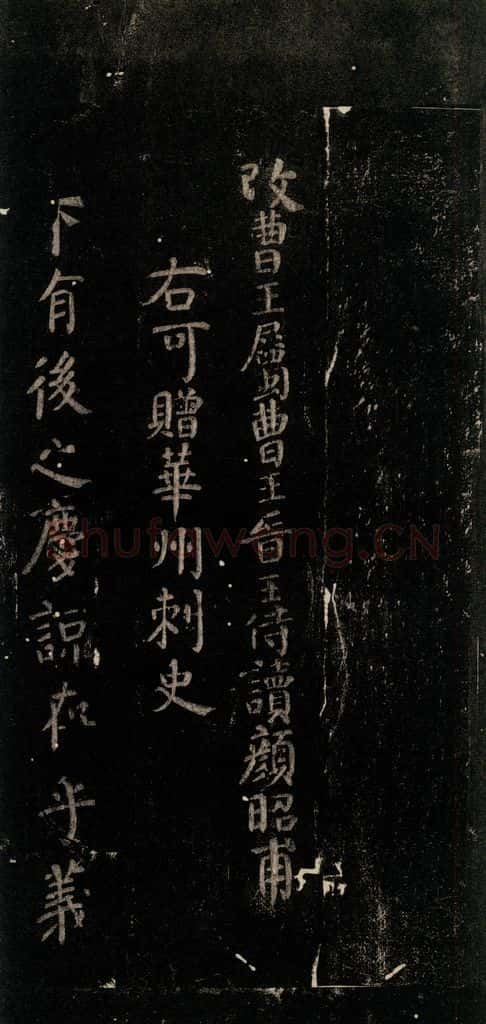 故曹王屬曹王晉王侍讀顏昭甫
右可贈華州刺史
下有後之慶諒在乎義
shufawang.CN